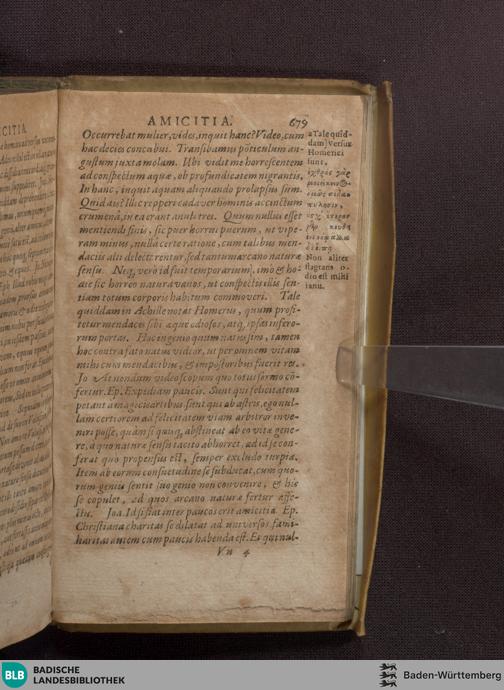 AMICITIA. 679
Occurrebat mulier, vides, inquit hanc? Video, cum
hac decies concubui. Transibamus pōticulum an-
gustum juxta molam. Ubi vidit me horrescentem
ad conspectum aquæ, ob profunditatem nigrantis,
In hanc, inquit aquam aliquando prolapsus sum.
Quid ais? Illic reperi cadaver hominis accinctum
crumenâ, in ea erant anuli tres. Quum nullus esset
mentiendi finis, sic puer horrui puerum, ut vipe-
ram minus, nulla certe ratione, cum talibus men-
daciis alii delectarentur, sed tantum arcano naturæ
sensu. Neq, verò id fuit temporarium, imo & ho-
die sic horreo natura vanos, ut conspectis illis sen-
tiam totum corporis habitum commoveri. Tale
quiddam in Achille notat Homerus, quum profi-
tetur mendaces sibi æque odiosos, atq, ipsas infero-
rum portas. Hoc ingenio quum natus sim, tamen
hoc contra fato natus videor, ut per omnem vitam
mihi cum mendacibus, & impostoribus fuerit res.
Jo At nondum video scopum quo totus sermo cō-
fertur. Ep. Expediam paucis. Sunt qui felicitatem
petant à magicis artibus, sunt qui ab astris, ego nul-
lam certiorem ad felicitatem viam arbitror inve-
niri posse, quàm si quisq, abstineat ab eo vitæ gene-
re, à quo naturæ sensu tacito abhorret, ad id se con-
ferat quo propensus est, semper excludo turpia.
Item ab eorum consuetudine se subducat, cum quo-
rum genius sentit suo genio non convenire, & his
se copulet, ad quos arcano naturæ fertur affe-
ctu. Joa. Id si fiat inter paucos erit amicitia. Ep.
Christiana charitas se dilatat ad universos, fami-
liaritas autem cum paucis habenda est. Et qui nul-
Vu 4
a Tale quid-
dam) Versus
Homerici
sunt,
Non aliter
flagrans o-
dio est mihi
ianu.
BLB BADISCHE
LANDESBIBLIOTHEK
Baden-Württemberg